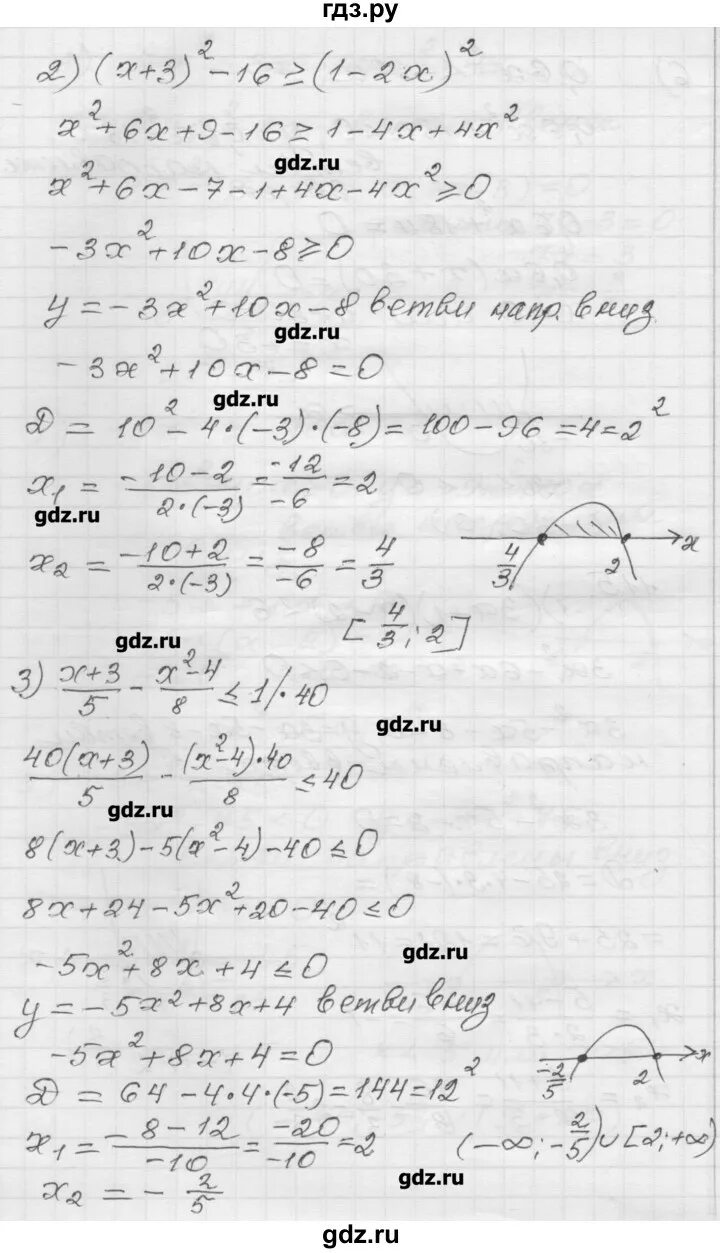 гдз.ру
2) (x+3)² - 16 ≥ (1 - 2x)²
x² + 6x + 9 - 16 ≥ 1 - 4x + 4x²
gdz.ru
x² + 6x - 7 - 1 + 4x - 4x² ≥ 0
-3x² + 10x - 8 ≥ 0
y = -3x² + 10x - 8 ветви напр. вниз.
gdz.ru
-3x² + 10x - 8 = 0
gdz.ru
D = 10² - 4·(-3)·(-8) = 100 - 96 = 4 = 2²
x₁ = (-10-2)/(2·(-3)) = -12/-6 = 2
gdz.ru
x₂ = (-10+2)/(2·(-3)) = -8/-6 = 4/3
4/3 2 x
[4/3; 2]
gdz.ru
3) (x+3)/5 - (x²-4)/8 ≤ 1 /·40
gdz.ru
40(x+3)/5 - (x²-4)·40/8 ≤ 40
gdz.ru
8(x+3) - 5(x²-4) - 40 ≤ 0
8x + 24 - 5x² + 20 - 40 ≤ 0
-5x² + 8x + 4 ≤ 0
gdz.ru
y = -5x² + 8x + 4 ветви вниз
-5x² + 8x + 4 = 0
-2/5 2 x
D = 64 - 4·4·(-5) = 144 = 12²
x₁ = (-8-12)/-10 = -20/-10 = 2
(-∞; -2/5) ∪ [2; +∞)
x₂ = -2/5
gdz.ru
gdz.ru